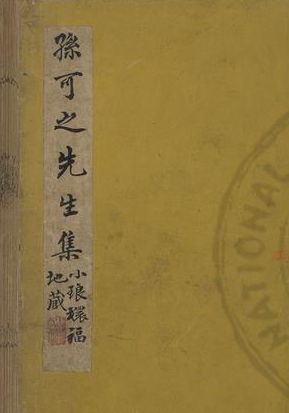 孫可之先生集
小琅環福
地藏
NATIONAL